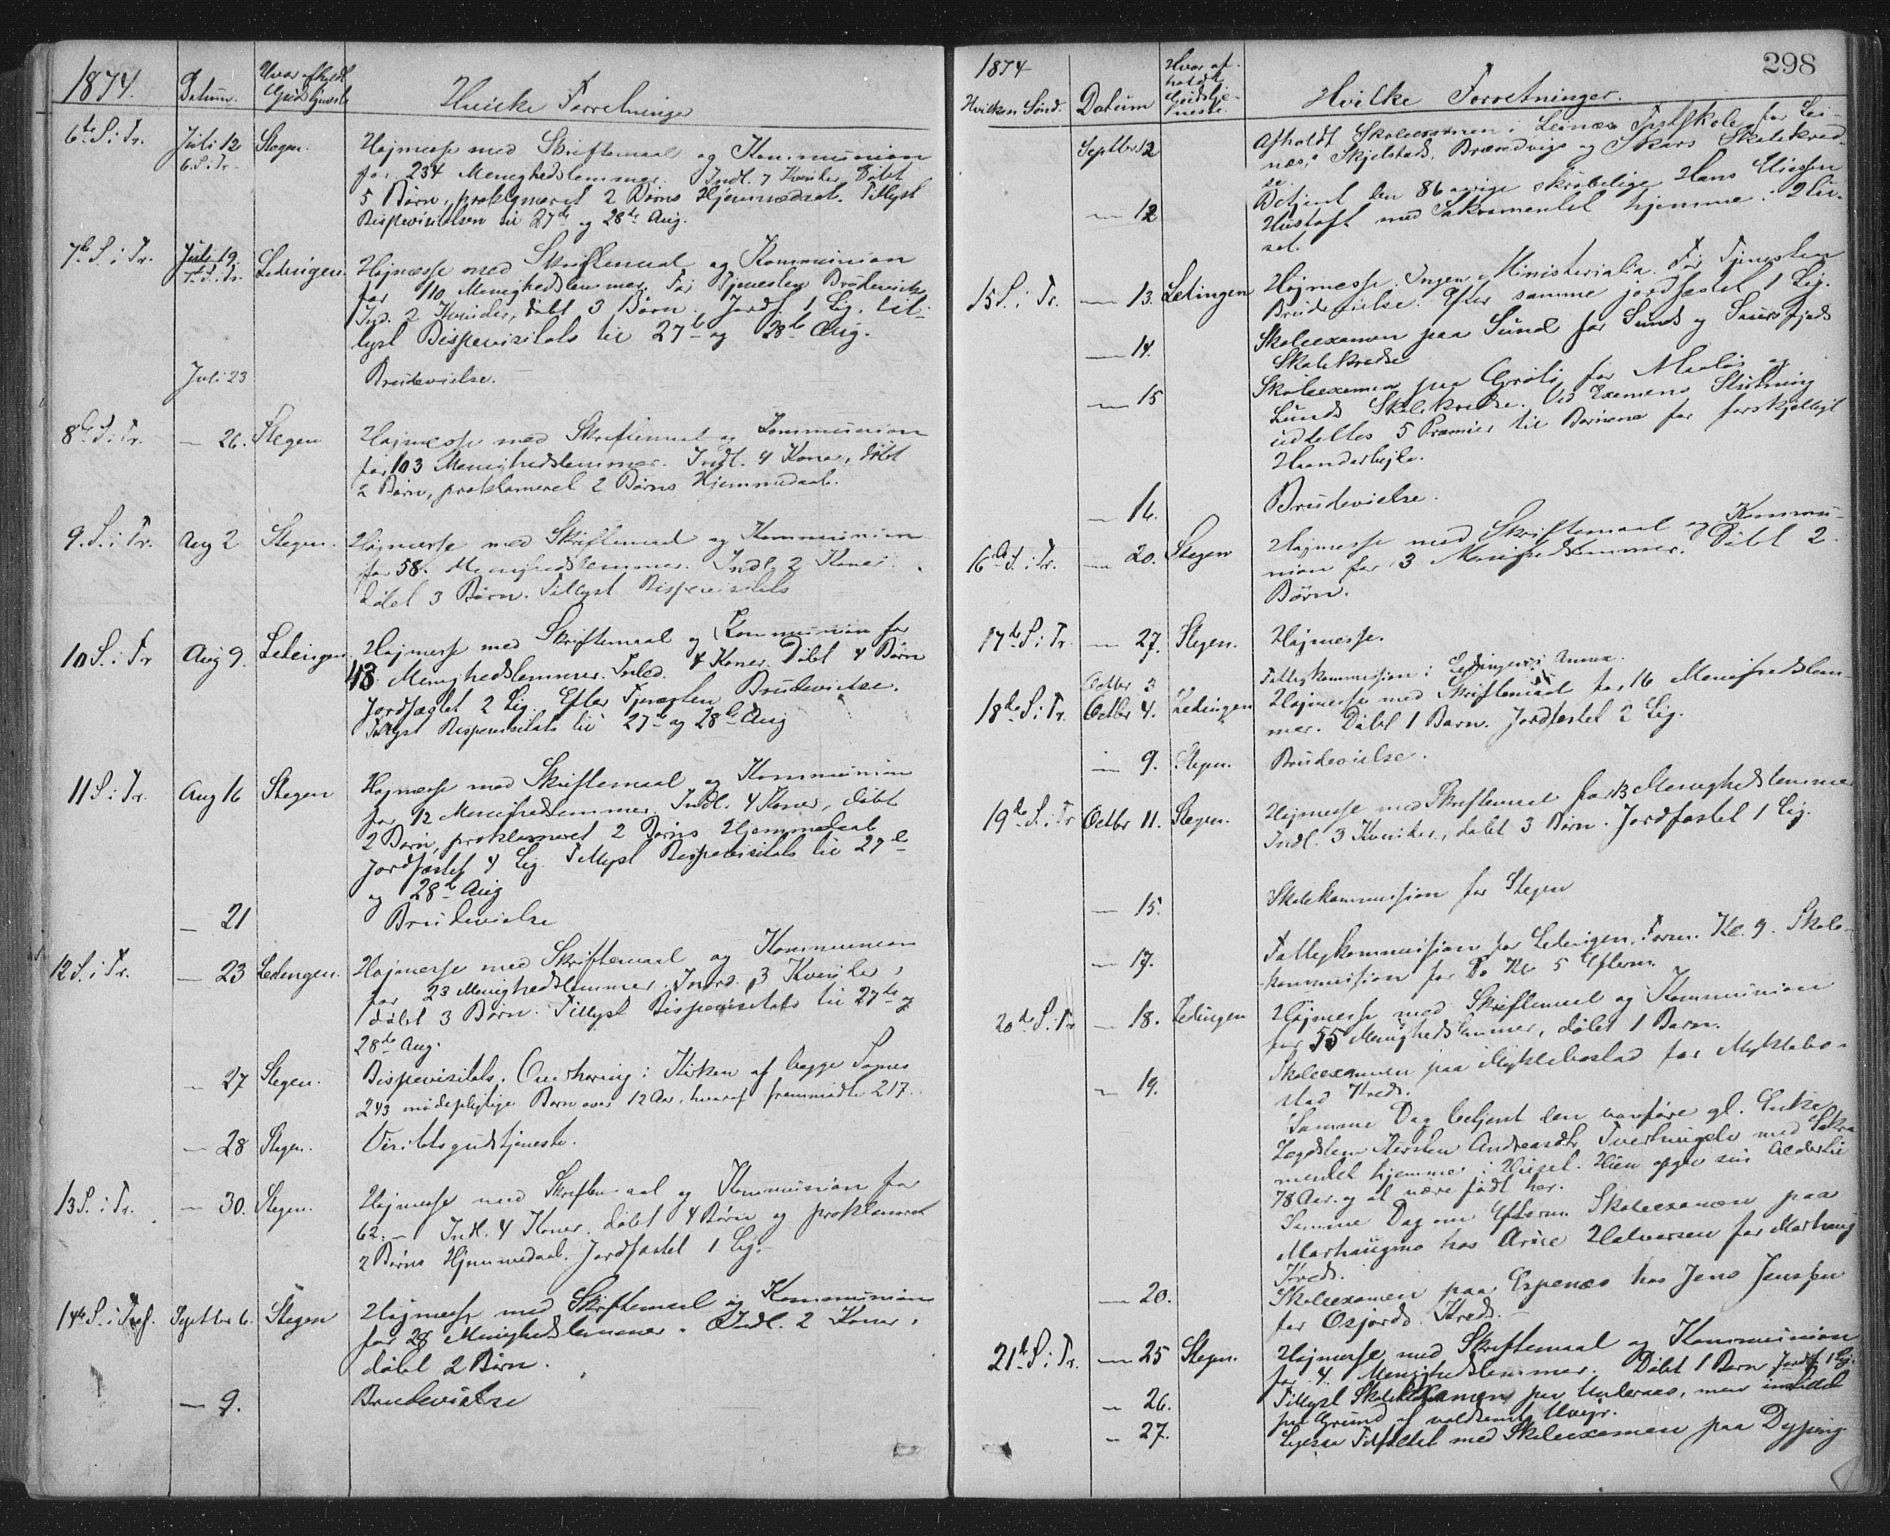 1874.
Datum.
Hvor afholdt Gudstjeneste
Hvilke Forretninger
6te S. i Tr.
Juli 12
6 S. i Tr.
Stegen.
Højmesse med Skriftemaal og Kommunion
for 234 Menighedslemmer. Indl. 7 Kvinder, Døbt
5 Børn, proklameret 2 Børns Hjemmedaab. Tillyst
Bispevisitatsen til 27de og 28de Aug.
7de S. i Tr.
Juli 19.
7de S. i Tr.
Lødingen
Højmesse med Skriftemaal og Kommunion
for 110 Menighedslemmer. Før Tjenesten Brudevielse
Ind. 2 Kvinder, døbt 3 Børn. Jordf. 1 Lig, til-
lyst Bispevisitats til 27de og 28de Aug.
Juli 23
Brudevielse.
8de S. i Tr.
— 26.
Stegen
Højmesse med Skriftemaal og Kommunion
for 103 Menighedslemmer. Indl. 4 Koner, døbt
2 Børn, proklameret 2 Børns Hjemmedaab.
9. S. i Tr.
Aug 2
Stegen.
Højmesse med Skriftemaal og Kommunion
for 58. Menighedslemmer. Indl. 2 Koner.
døbt 3 Børn. Tillyst Bispevisitats
10 S. i Tr
Aug 9.
Lødingen
Højmesse med Skriftemaal og Kommunion for
48 Menighedslemmer. Inled. 4 Koner. Døbt 4 Børn
Jordfæstet 2 Lig. Efter Tjenesten Brudevielse.
Tillyst Bispevisitats til 27de og 28de Aug
11 S. i Tr.
Aug 16
Stegen
Højmesse med Skriftemaal og Kommunion
for 92 Menighedslemmer, Indl. 4 Koner, døbt
2 Børn, proklameret 2 Børns Hjemmedaab
Jordfæstet 4 Lig. Tillyst Bispevisitats til 27de
og 28de Aug
— 21
Brudevielse
12 S. i Tr.
— 23
Lødingen.
Højmesse med Skriftemaal og Kommunion
for 23 Menighedslemmer. 3 Kvinder,
døbt 3 Børn. Tillyst Bispevisitats til 27de og
28de Aug.
— 27
Stegen.
Bispevisitats. Overhøring i Kirken af begge Sognes
243 mødepligtige Børn over 12 Aar, hvoraf fremmødte 217.
— 28
Stegen.
Visitatsgudstjeneste.
13 S. i Tr.
— 30.
Stegen.
Højmesse med Skriftemaal og Kommunion for
62. — Indl. 4 Koner. døbt 4 Børn og proklameret
2 Børns Hjemmedaab. Jordfæstet 1 Lig.
14de S. i Tref.
Septbr 6.
Stegen
Højmesse med Skriftemaal og Kommunion
for 28 Menighedslemmer. Indl. 2 Koner,
døbt 2 Børn.
— 9.
Brudevielse
298
1874
Hvilken Sønd.
Datum
Hvor af-
holdt
Gudstje-
neste
Hvilke Forretninger.
Septbr 12
Afholdt Skoleexamen i Leines Fastskole for Lei-
nes, Skjelstads, Brændvigs og Skårs Skolekred-
se.
— 12
Betjent den 86 aarige skrøbelige Hans
med Sakramentet hjemme i Hu-
set.
15 S. i Tr.
— 13.
Lødingen
Højmesse. Ingen Ministerialia. Før Tjenesten
Brudevielse. Efter samme jordfæstet 1 Lig.
— 14.
Skoleexamen paa Sund for Sunds og
Skolekredse
— 15
Skoleexamen paa for og
Lunds Skolekredse. Ved Examens Slutning
uddeltes 5 Præmier til Børnene for forskjelligt
Haandarbejde.
— 16.
Brudevielse.
16de S. i Tr.
— 20.
Stegen
Højmesse med Skriftemaal og Kommu-
nion for 3 Menighedslemmer. Døbt 2
Børn.
17de S. i Tr.
— 27.
Stegen.
Højmesse.
Octbr 3
Fattigkommission i Lødingens Annex.
18de S. i Tr.
Octbr 4.
Lødingen
Højmesse med Skriftemaal for 16 Menighedslem-
mer. Døbt 1 Barn. Jordfæstet 2 Lig.
— 9.
Stegen.
Brudevielse.
19de S. i Tr
Octbr 11.
Stegen.
Højmesse med Skriftemaal for 13 Menighedslemmer
Indl. 3 Kvinder, døbt 3 Børn. Jordfæstet 1 Lig.
— 15.
Skolekommission for Stegen
— 17.
Fattigkommission for Lødingen. Form. Kl. 9. Skole-
kommission for Do Kl 5 Efterm.
20de S. i Tr
— 18.
Lødingen
Højmesse med Skriftemaal og Kommunion
for 55 Menighedslemmer, døbt 1 Barn.
— 19.
Skoleexamen paa Myklebostad for Myklebo-
stad Kreds.
Samme Dag betjent den vanføre gl. Enke
Lægdslem Kirsten Andreasdtr med Sakra
mentet hjemme i Huset. Hun opgav sin Alder til
78 Aar. og at være født her.
Samme Dag om Efterm. Skoleexamen paa
Marhaugmo hos Arne Halvorsen for Marhaug
Kreds.
— 20.
Skoleexamen paa Espenes hos Jens Jenssen
for Osfjords Kreds.
21de S. i Tr.
— 25
Stegen.
Højmesse med Skriftemaal og Kommunion
for 4. Menighedslemmer. Døbt 1 Barn Jordf. 1 Lig.
— 26.
Tillyst Skoleexamen paa men
paa Grund af voldsomt Uvejr.
— 27.
Tilfældet med Skoleexamen paa Dyping